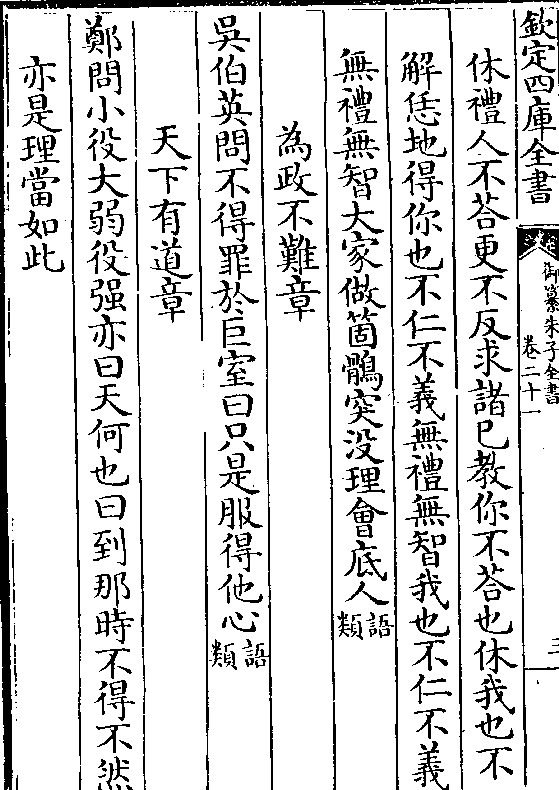 欽定四庫全書
御纂朱子全書
卷二十一
三
休禮人不荅更不反求諸已教你不荅也休我也不
解恁地得你也不仁不義無禮無智我也不仁不義
無禮無智大家做箇鶻突没理會底人語類
為政不難章
吳伯英問不得罪於巨室曰只是服得他心語類
天下有道章
鄭問小役大弱役强亦曰天何也曰到那時不得不然
亦是理當如此